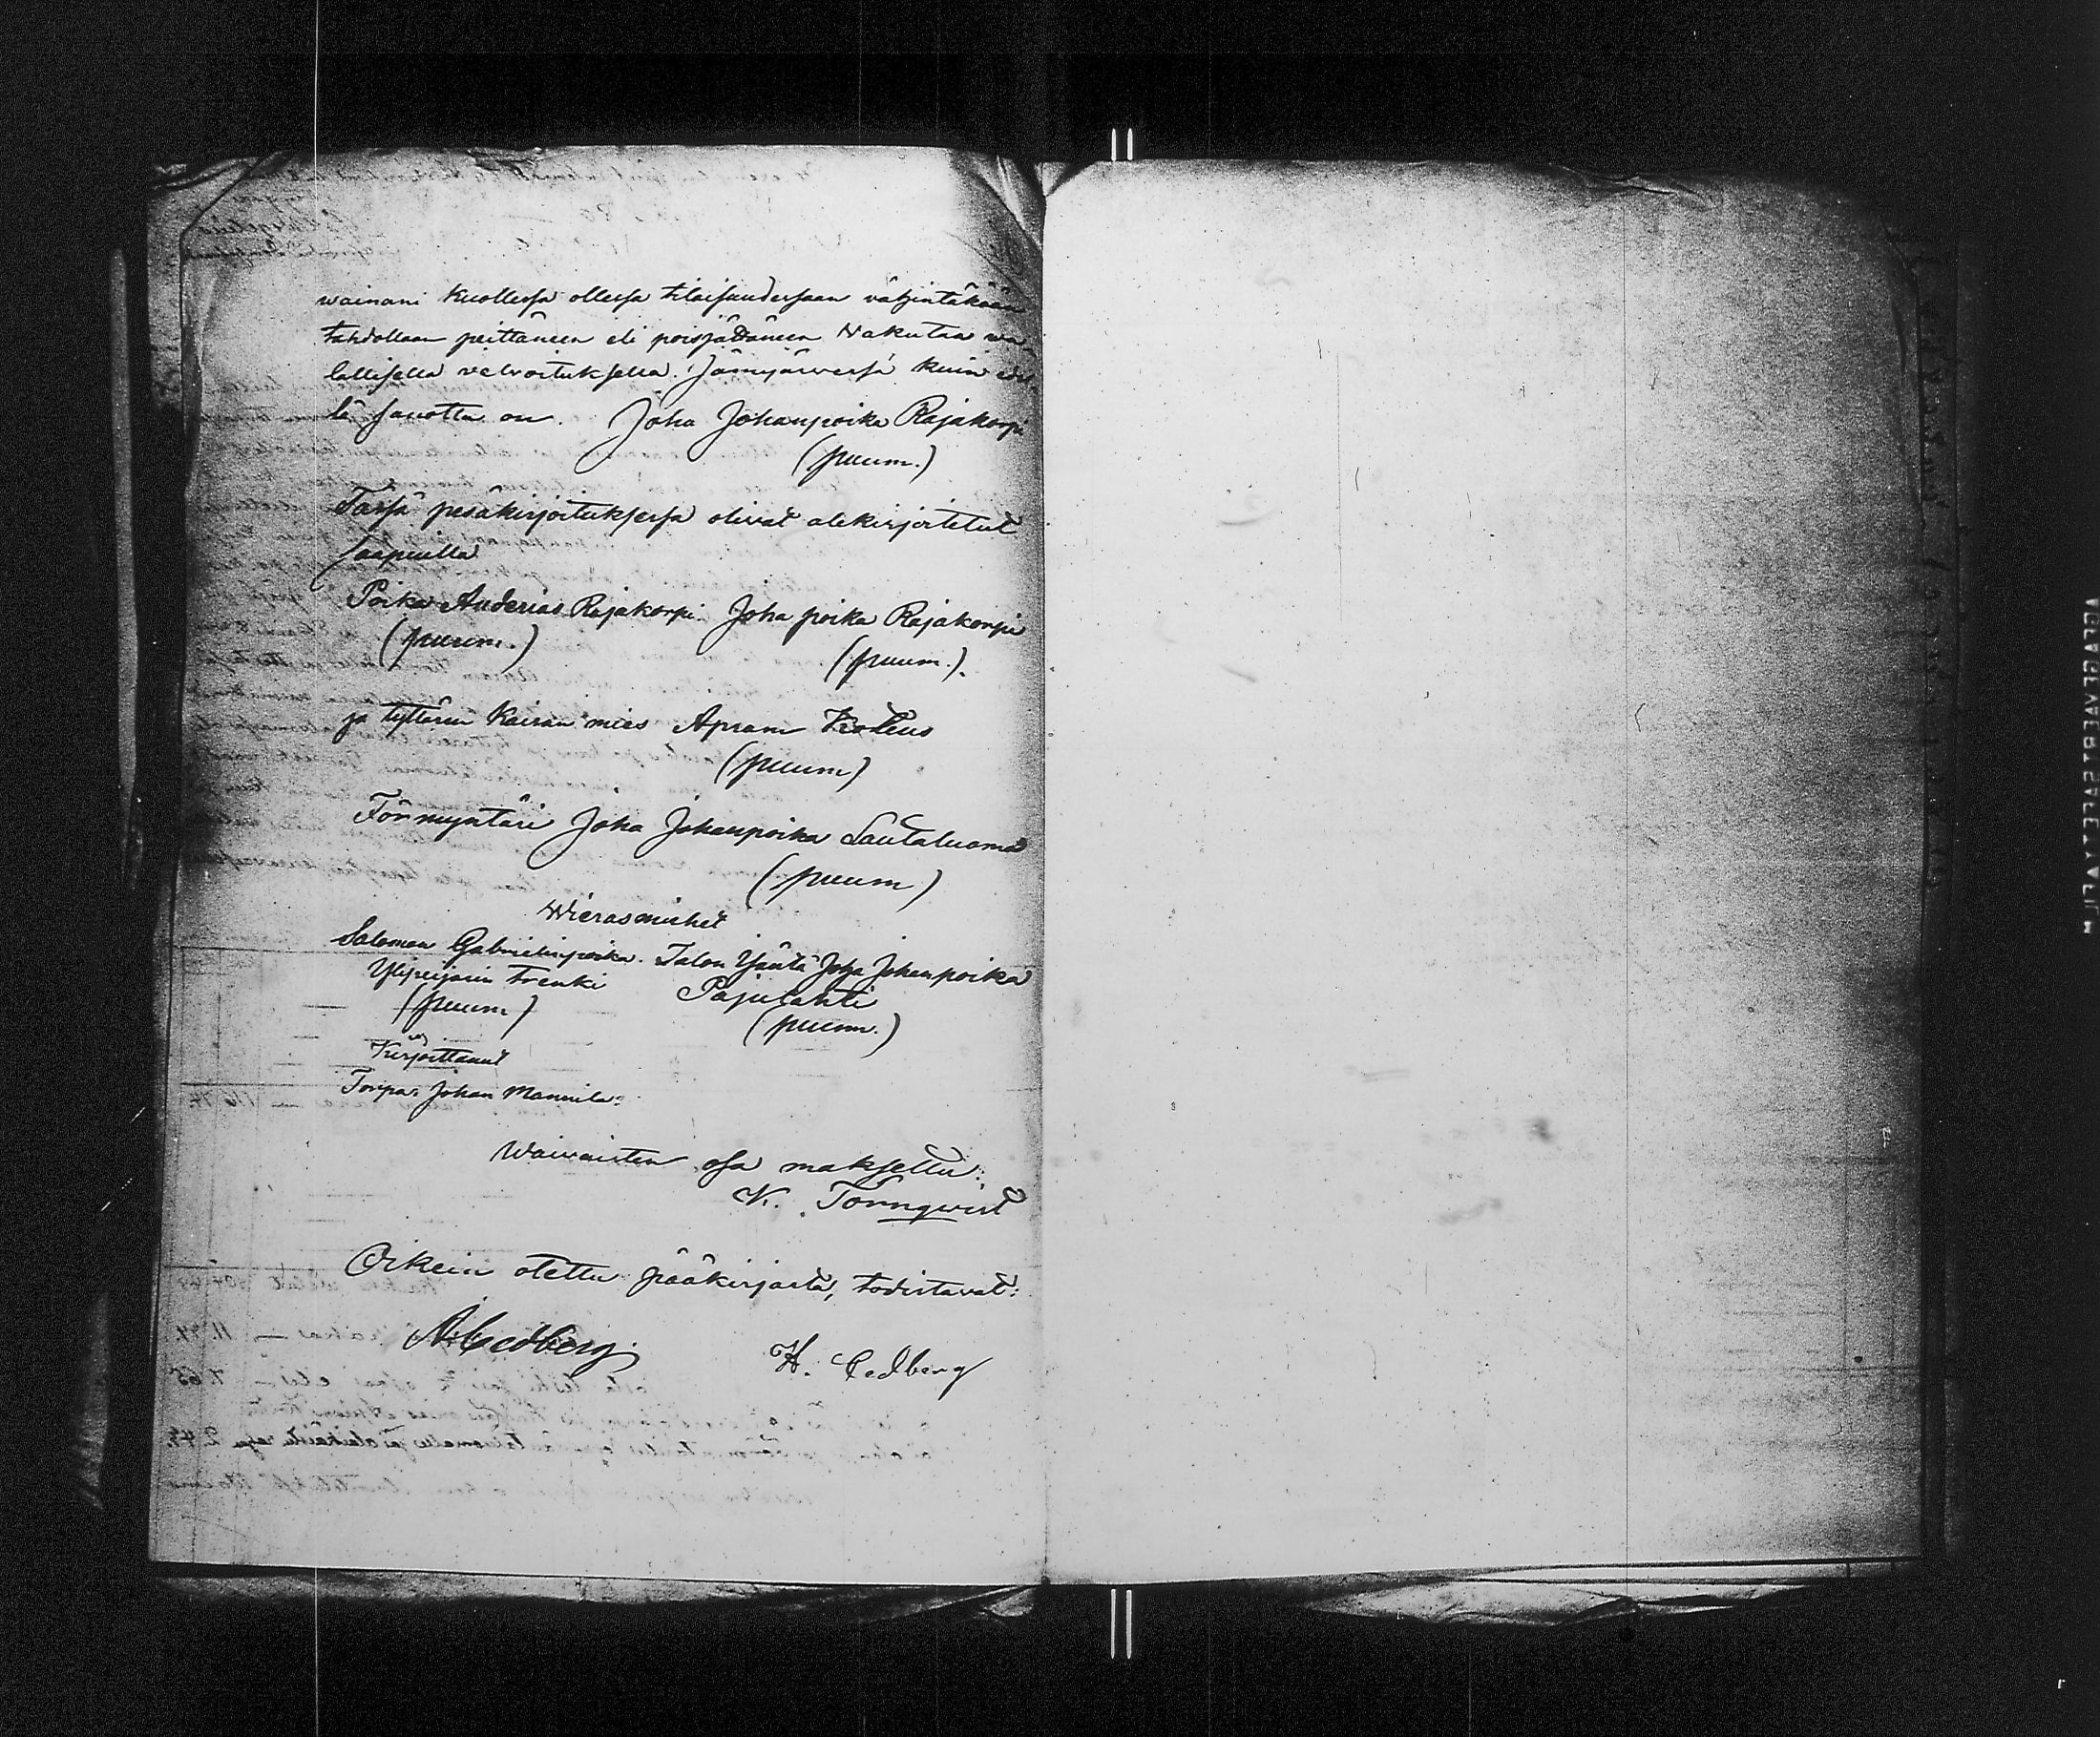 wainani kuollessa ollessa tilaisuudessaan vähintäkään
tahdollaan peittäneen eli poisjättäneen Wakutaa wa-
lallisella velvoituksella. Jämijärvessä kuin edel
lä sanottu on. Joha Johanpoika Rajakorpi
(puum.)
Tässä pesäkirjoituksessa olivat alekirjoitetut
saapuilla
Poika Anderias Rajakorpi Joha poika Rajakorpi
(puum.) (puum.).
ja tyttären Kaisan mies Apram
(puum)
Förmyntäri Joha Johanpoika Lautaluoma
(puum)
Wierasmiehet
Salomon Gabrielinpoika. Talon Isäntä Joha Johanpoika
Ylipeijarin trenki Pajulahti
(puum) (puum.)
Kirjoittanut
Torpa: Johan Mannila:
Waivaisten osa maksettu:
K. Törnqwist
Oikein otettu pääkirjasta, todistavat:
A. Cedberg H. Cedberg